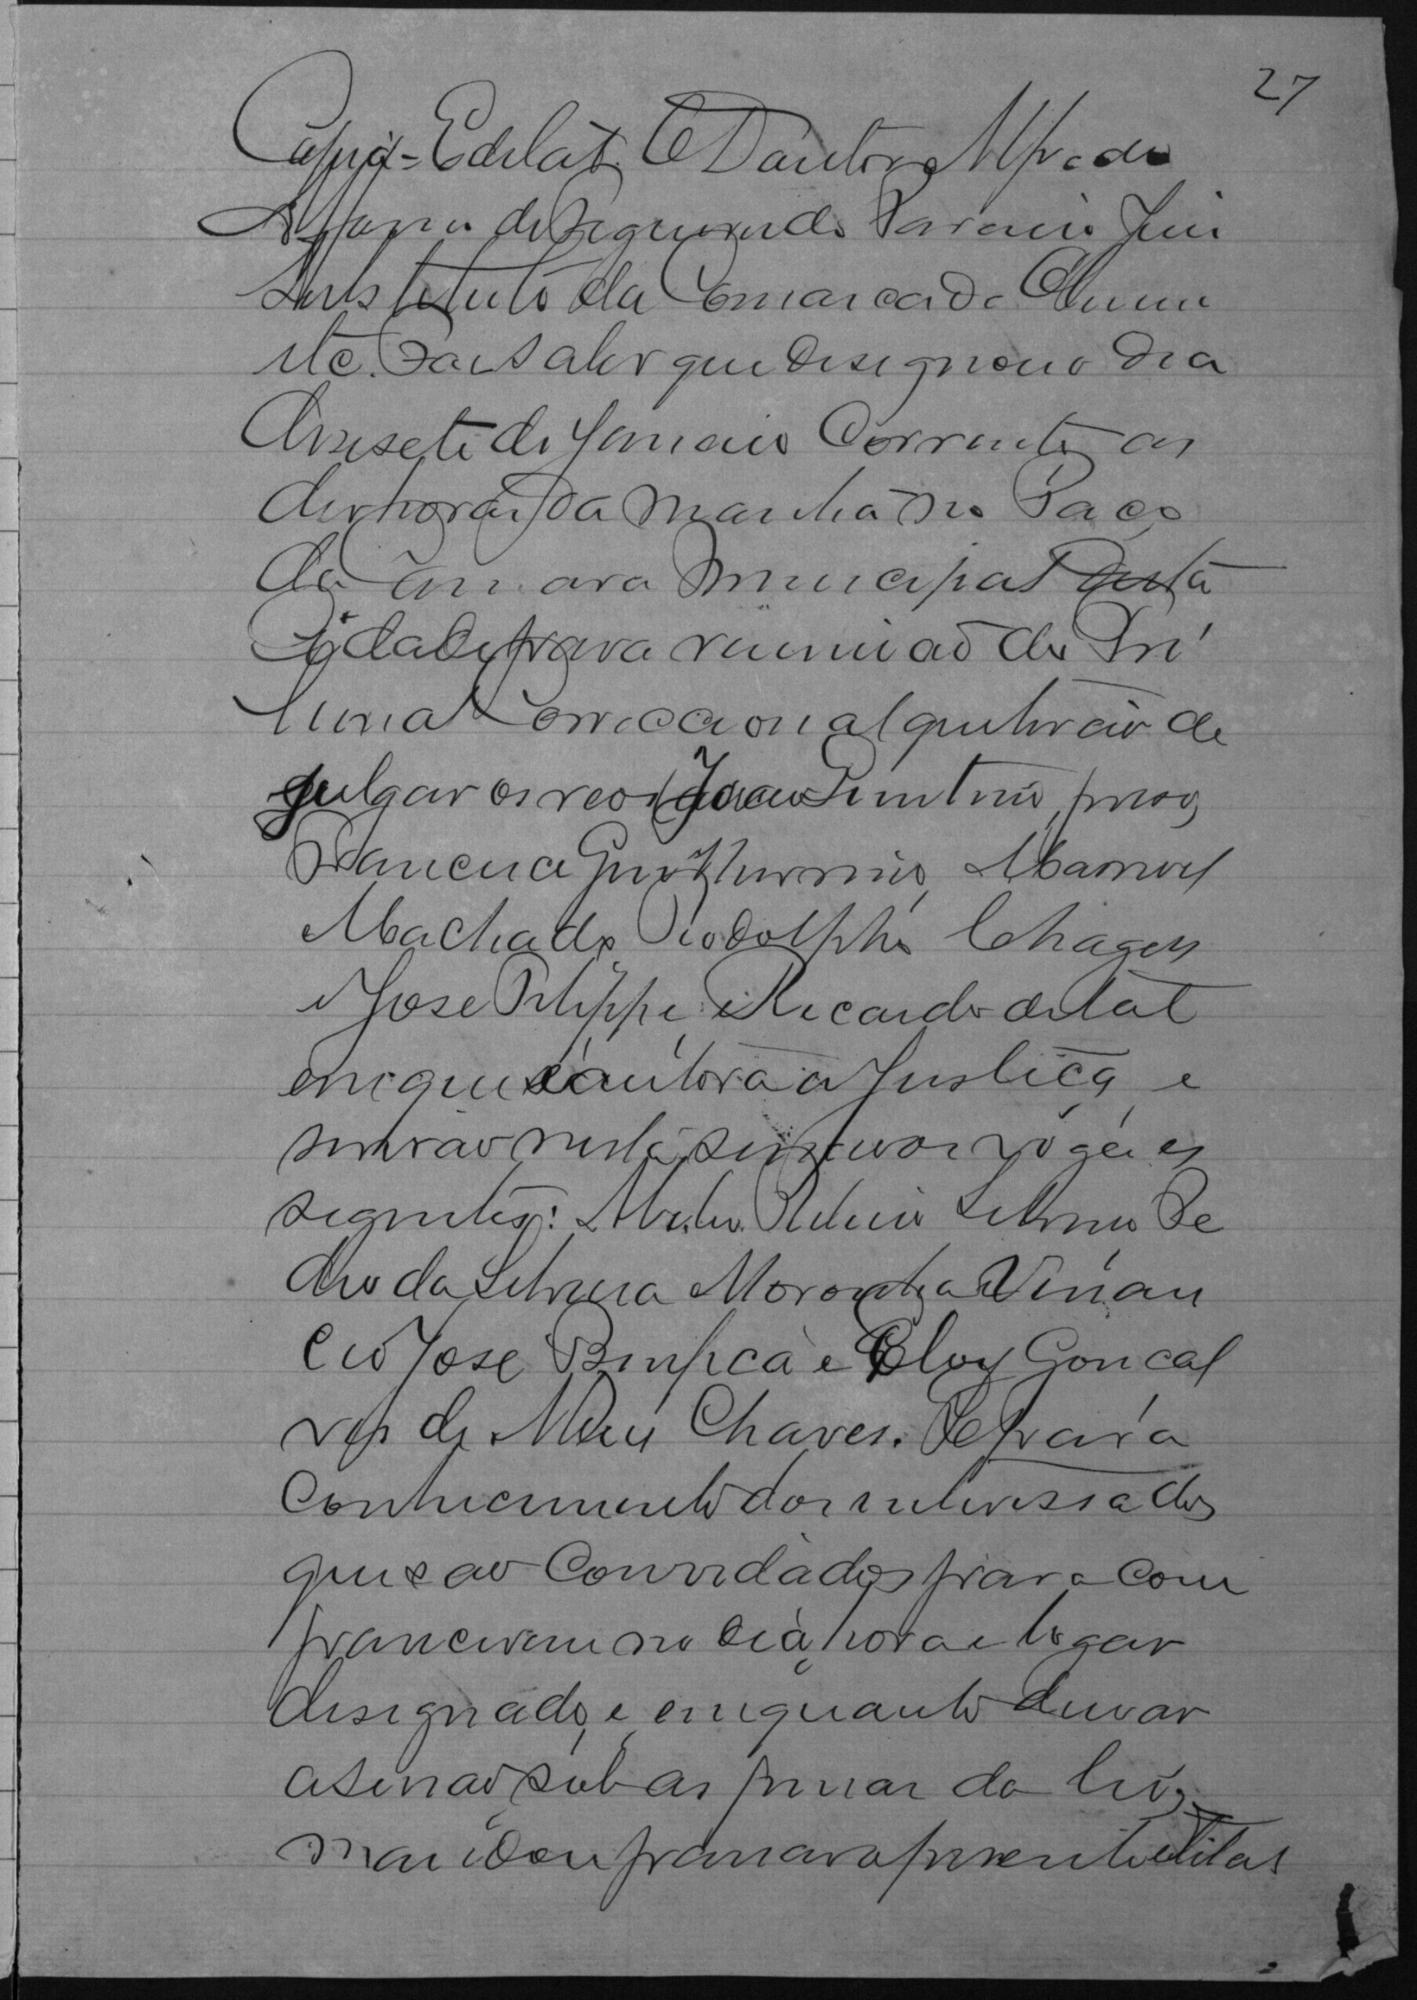 27
Copia = Edital. O Doutor Alfredo
de Figueiredo Juiz
Substituto da Comarca de
etc. Faz saber que designou o dia
desesete de Janeiro Corrente as
dez horas da manhã no Paço
da Camara Municipal desta
Cidade para reunião do Tri
bunal Correccional que terão de
julgar os reos João preso,
Francisco Guilhermino, Manoel
Machado, Rodolpho Chagas
e Jose Felippe, e Ricardo de tal
em que é autora a Justiça, e
servirão nesta sessão os vogaes
seguintes: Ribeiro Pe
dro da Silveira Venan
cio Jose Bemfica e Eloy Goncal
ves de Chaves. E para
Conhecimento dos interessados
que são Convidados para com
parecerem no dia, hora e logar
designado, e emquanto durar
a sessão sob as penas da lei,
mandou passar o presente edital